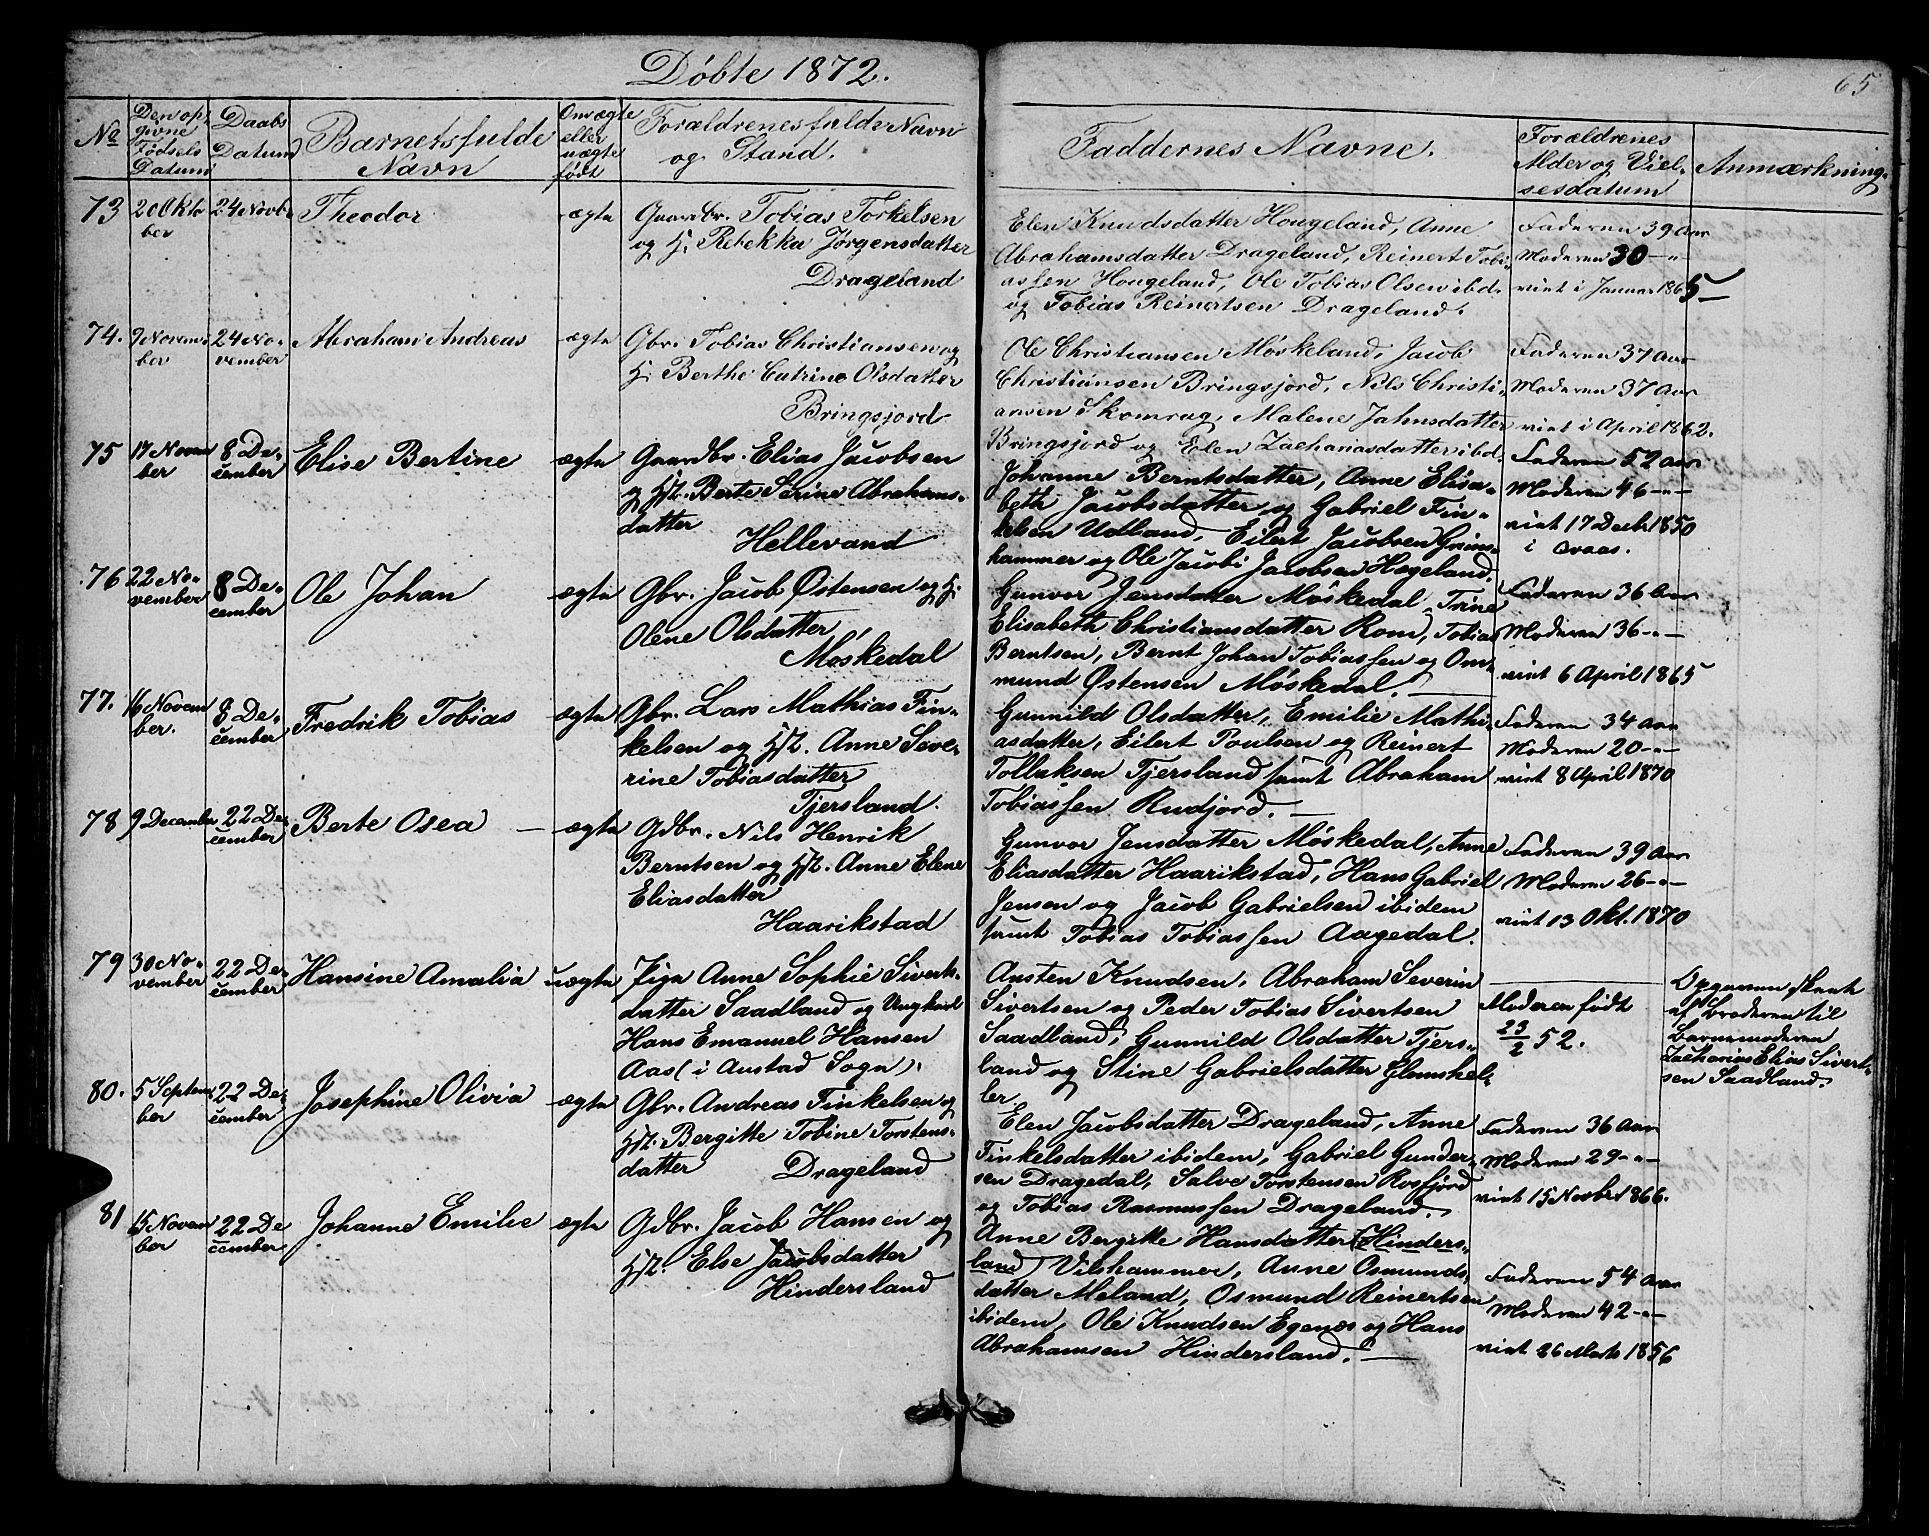 Døbte 1872.
65
No
Den op-
givne
Fødsels
Datum
Daabs
Datum
Barnets fulde
Navn
Om ægte
eller
uægte
født
Forældrenes fulde Navn
og Stand.
Faddernes Navne.
Forældrenes
Alder og Viel-
sesdatum
Anmærkning.
73
20 Okto
ber
24 Novb.
Theodor
ægte
Gaardbr. Tobias Torkelsen
og H. Rebekka Jørgensdatter
Drageland
Elen Knudsdatter Hougeland, Anne
Abrahamsdatter Drageland, Reinert Tobi-
assen Hougeland, Ole Tobias Olsen ibd.
og Tobias Reinertsen Drageland.
Faderen 39 Aar
Moderen 30 -"-
viet i Januar 1865
74.
9 Novem-
ber
24 No-
vember
Abraham Andreas
ægte
Gbr. Tobias Christiansen og
H. Berthe Catrine Olsdatter
Bringsjord
Ole Christiansen Møskeland, Jacob
Christiansen Bringsjord, Nils Christi-
ansen Skomrag, Malene Jahnsdatter
Bringsjord og Elen Zachariasdatter ibd.
Faderen 37 Aar
Moderen 37 Aar
viet i April 1862.
75
17 Novem
ber
8 De-
cember
Elise Bertine
ægte
Gaardbr. Elias Jacobsen
og Hst. Berte Serine Abrahams-
datter
Hellevand
Johanne Berntsdatter, Anne Elisa-
beth Jacobsdatter, og Gabriel Fin-
kelsen Udland, Eilert Jacobsen Grims-
hammer og Ole Jacobi Jacobsen Hægeland.
Faderen 52 Aar
Moderen 46 -"-
viet 17 Decb. 1850
i Qvaas.
76
22 No-
vember
8 De-
cember
Ole Johan
ægte
Gbr. Jacob Østensen og H.
Olene Olsdatter,
Møskedal
Gunvor Jensdatter Møskedal, Trine
Elisabeth Christiansdatter Rom, Tobias
Berntsen, Bernt Johan Tobiassen og Om-
mund Østensen Møskedal.
Faderen 36 Aar
Moderen 36 -"-
viet 6 April 1865
77.
16 Novem
ber.
8 De-
cember
Fredrik Tobias
ægte
Gbr. Lars Mathias Fin-
kelsen og Hst. Anne Seve-
rine Tobiasdatter
Tjersland.
Gunnild Olsdatter, Emilie Mathi-
asdatter, Eilert Poulsen og Reinert
Tollaksen Tjersland samt Abraham
Tobiassen Rudjord.
Faderen 34 Aar
Moderen 20 -"-
viet 8 April 1870
78
9 December
22 De-
cember
Berte Osea
ægte
Gdbr. Nils Henrik
Berntsen og Hst. Anne Elene
Eliasdatter
Haarikstad
Gunvor Jensdatter Møskedal, Anne
Eliasdatter Haarikstad, Hans Gabriel
Jensen og Jacob Gabrielsen ibidem
samt Tobias Tobiassen Aagedal.
Faderen 39 Aar
Moderen 26 -"-
viet 13 Okt. 1870
79
30 No-
vember
22 De-
cember
Hansine Amalia
uægte
Pige Anne Sophie Siverts-
datter Saadland og Ungkarl
Hans Emanuel Hansen
Aas (i Austad Sogn).
Austen Knudsen, Abraham Severin
Sivertsen og Peder Tobias Sivertsen
Saadland, Gunnild Olsdatter Tjers-
land og Stine Gabrielsdatter Glomshel-
ler.
Moderen født
23/2 52.
Opgaven skeet
af Broderen til
Barnemoderen
Zacharias Elias Sivert-
sen Saadland.
80.
5 Septem
ber
22 De-
cember
Josephine Olivia
ægte
Gbr. Andreas Finkelsen og
Hst. Bergitte Tobine Torstens-
datter Drageland
Elen Jacobsdatter Drageland, Anne
Finkelsdatter ibidem, Gabriel Gunder-
sen Dragedal, Salve Torstensen Rosfjord
og Tobias Rasmussen Drageland.
Faderen 36 Aar
Moderen 29 -"-
viet 15 Novber 1866.
81
15 Novem
ber
22 De
cember
Johanne Emilie
ægte
Gdbr. Jacob Hansen og
Hst. Else Jacobsdatter
Hindersland
Anne Bergitte Hansdatter (Hinders-
land Vilshammer, Anne Osmunds-
datter Meland, Osmund Reinertsen
ibidem, Ole Knudsen Egenæs og Hans
Abrahamsen Hindersland.
Faderen 54 Aar
Moderen 42 -"-
viet 26 Marts 1856